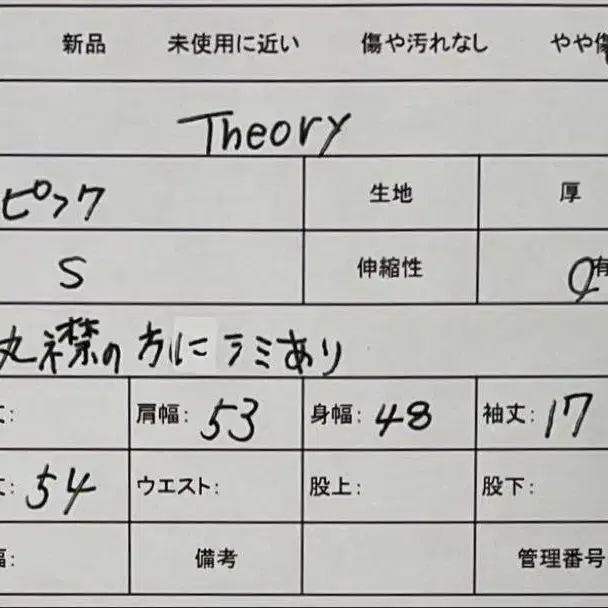 新品 未使用に近い 傷や汚れなし やや傷
Theory
ピンク 生地 厚
S 伸縮性 有
丸襟の方にシミあり
丈: 肩幅: 53 身幅: 48 袖丈: 17
丈: 54 ウエスト: 股上: 股下:
幅: 備考 管理番号